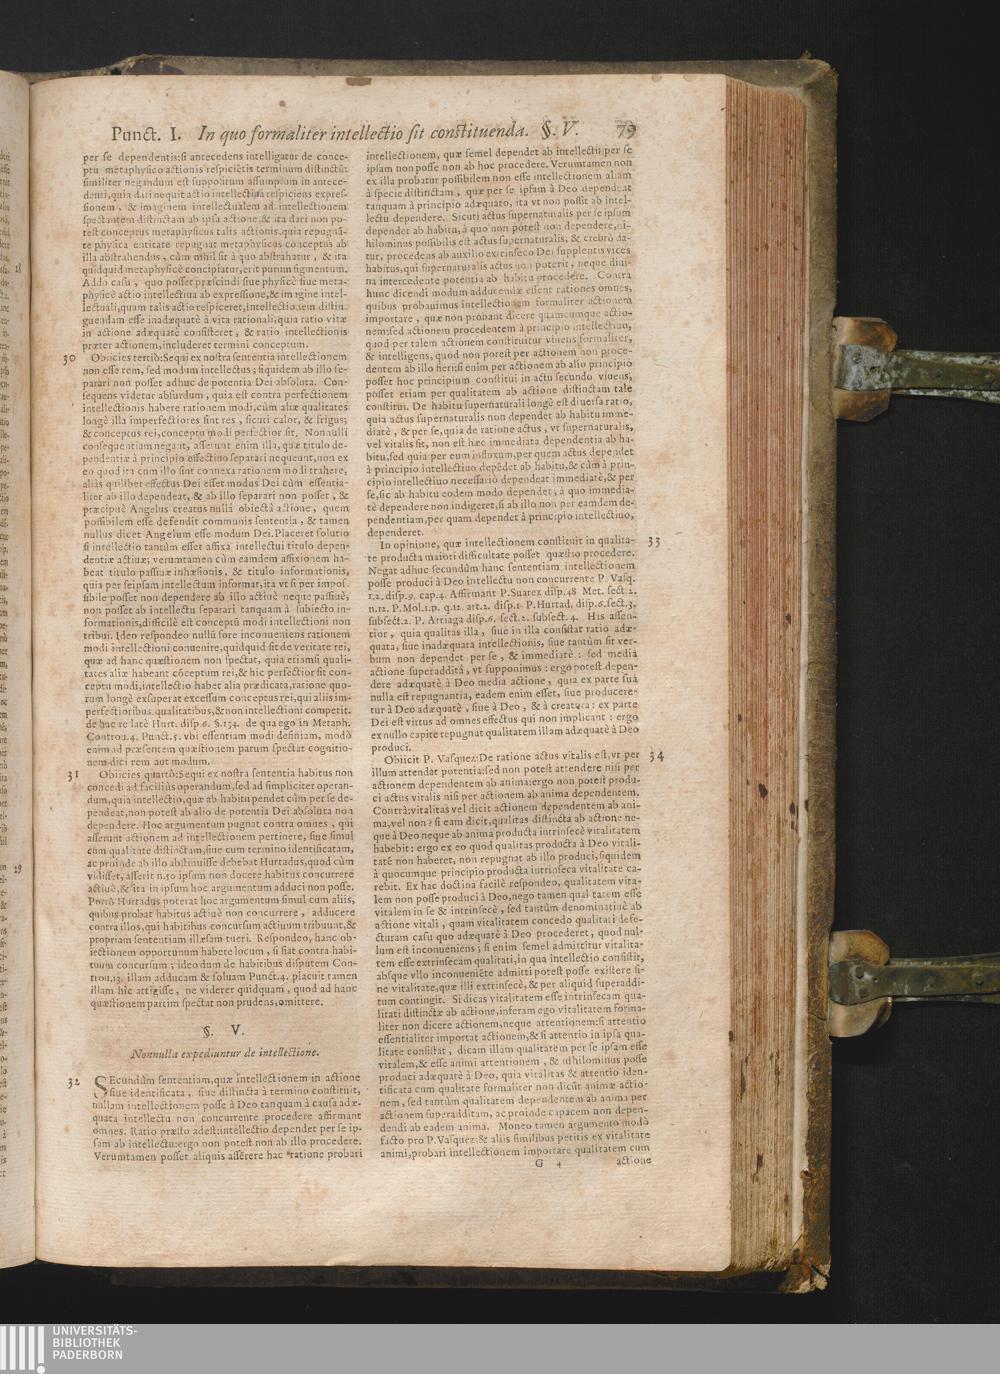 Punct. I. In quo formaliter intellectio sit constituenda. §. V. 79
per se dependentis: si antecedens intelligatur de conce-
ptu metaphysico actionis respicietis terminum distinctũ:
similiter negandum est suppositum assumptum in antece-
denti, quia dari nequit actio intellectiua respiciens expres-
sionem, & imaginem intellectualem ad intellectionem
spectantem distinctam ab ipsa actione, & ita dari non po-
test conceptus metaphysicus talis actionis, quia repugnã-
te physica entitate repugnat metaphysicus conceptus ab
illa abstrahendus, cùm nihil sit à quo abstrahatur, & ita
quidquid metaphysicè concipiatur, erit purum figmentum.
Addo casu, quo posset præscindi siue physicè siue meta-
physicè actio intellectiua ab expressione, & imagine intel-
lectuali, quam talis actio respiceret, intellectionem distin-
guendam esse inadæquatè à vita rationali, quia ratio vitæ
in actione adæquatè consisteret, & ratio intellectionis
præter actionem, includeret termini conceptum.
30 Obiicies tertiò: Sequi ex nostra sententia intellectionem
non esse rem, sed modum intellectus; siquidem ab illo se-
parari non posset adhuc de potentia Dei absoluta. Con-
sequens videtur absurdum, quia est contra perfectionem
intellectionis habere rationem modi, cùm aliæ qualitates
longè illa imperfectiores sint res, sicuti calor, & frigus;
& conceptus rei, conceptu modi perfectior sit. Nonnulli
consequentiam negant, asserunt enim illa, quæ titulo de-
pendentiæ à principio effectiuo separari nequeunt, non ex
eo quod ita cum illo sint connexa rationem modi trahere,
aliàs quilibet effectus Dei esset modus Dei cùm essentia-
liter ab illo dependeat, & ab illo separari non posset, &
præcipuè Angelus creatus nullâ obiectâ actione, quem
possibilem esse defendit communis sententia, & tamen
nullus dicet Angelum esse modum Dei. Placeret solutio
si intellectio tantùm esset affixa intellectui titulo depen-
dentiæ actiuæ; verumtamen cùm eamdem affixionem ha-
beat titulo passiuæ inhæsionis, & titulo informationis,
quia per seipsam intellectum informat, ita vt si per impos-
sibile posset non dependere ab illo actiuè neque passiuè,
non posset ab intellectu separari tanquam à subiecto in-
formationis, difficilè est conceptũ modi intellectioni non
tribui. Ideo respondeo nullũ fore inconueniens rationem
modi intellectioni conuenire, quidquid sit de veritate rei,
quæ ad hanc quæstionem non spectat, quia etiamsi quali-
tates aliæ habeant cõceptum rei, & hic perfectior sit con-
ceptu modi, intellectio habet alia prædicata, ratione quo-
rum longè exsuperat excessum conceptus rei, qui aliis im-
perfectioribus qualitatibus, & non intellectioni competit.
de hac re latè Hurt. disp. 6. §. 134. de qua ego in Metaph.
Controu. 4. Punct. 5. vbi essentiam modi definiam, modò
enim ad præsentem quæstionem parum spectat cognitio-
nem dici rem aut modum.
31 Obiicies quartò: Sequi ex nostra sententia habitus non
concedi ad facilius operandum, sed ad simpliciter operan-
dum, quia intellectio, quæ ab habitu pendet cùm per se de-
pendeat, non potest ab alio de potentia Dei absoluta non
dependere. Hoc argumentum pugnat contra omnes, qui
asserunt actionem ad intellectionem pertinere, siue simul
cum qualitate distinctam, siue cum termino identificatam,
ac proinde ab illo abstinuisse debebat Hurtadus, quod cùm
vidisset, asserit n. 50 ipsum non docere habitus concurrere
actiuè, & ita in ipsum hoc argumentum adduci non posse.
Porrò Hurtadus poterat hoc argumentum simul cum aliis,
quibus probat habitus actiuè non concurrere, adducere
contra illos, qui habitibus concursum actiuum tribuunt, &
propriam sententiam illæsam tueri. Respondeo, hanc ob-
iectionem opportunum habere locum, si fiat contra habi-
tuum concursum; ideo dum de habitibus disputem Con-
trou. 13. illam adducam & soluam Punct. 4. placuit tamen
illam hîc attigisse, ne viderer quidquam, quod ad hanc
quæstionem partim spectat non prudens, omittere.
§. V.
Nonnulla expediuntur de intellectione.
32 SEcundùm sententiam, quæ intellectionem in actione
siue identificata, siue distincta à termino constituit,
nullam intellectionem posse à Deo tanquam à causa adæ-
quata intellectu non concurrente procedere affirmant
omnes. Ratio præsto adest: intellectio dependet per se ip-
sam ab intellectu: ergo non potest non ab illo procedere.
Verumtamen posset aliquis asserere hac ratione probari
intellectionem, quæ semel dependet ab intellectu per se
ipsam non posse non ab hoc procedere. Verumtamen non
ex illa probatur possibilem non esse intellectionem aliam
à specie distinctam, quæ per se ipsam à Deo dependeat
tanquam à principio adæquato, ita vt non possit ab intel-
lectu dependere. Sicuti actus supernaturalis per se ipsum
dependet ab habitu, à quo non potest non dependere, ni-
hilominus possibilis est actus supernaturalis, & crebrò da-
tur, procedens ab auxilio extrinseco Dei supplentis vices
habitus, qui supernaturalis actus non poterit, neque diui-
na intercedente potentia ab habitu procedere. Contra
hunc dicendi modum adducendæ essent rationes omnes,
quibus probauimus intellectionem formaliter actionem
importare, quæ non probant dicere quamcumque actio-
nem: sed actionem procedentem à principio intellectiuo,
quod per talem actionem constituitur viuens formaliter,
& intelligens, quod non potest per actionem non proce-
dentem ab illo fieri: si enim per actionem ab alio principio
posset hoc principium constitui in actu secundo viuens,
posset etiam per qualitatem ab actione distinctam tale
constitui. De habitu supernaturali longè est diuersa ratio,
quia actus supernaturalis non dependet ab habitu imme-
diatè, & per se, quia de ratione actus, vt supernaturalis,
vel vitalis sit, non est hæc immediata dependentia ab ha-
bitu, sed quia per eum influxum, per quem actus dependet
à principio intellectiuo depẽdet ab habitu, & cùm à prin-
cipio intellectiuo necessariò dependeat immediatè, & per
se, sic ab habitu eodem modo dependet, à quo immedia-
tè dependere non indigeret, si ab illo non per eamdem de-
pendentiam, per quam dependet à principio intellectiuo,
dependeret.
33 In opinione, quæ intellectionem constituit in qualita-
te producta maiori difficultate posset quæstio procedere.
Negat adhuc secundùm hanc sententiam intellectionem
posse produci à Deo intellectu non concurrente P. Vasq.
1. 2. disp. 9. cap. 4. Affirmant P. Suarez disp. 48 Met. sect. 2.
n. 12. P. Mol. 1. p. q. 12. art. 2. disp. 1. P. Hurtad. disp. 6. sect. 3.
subsect. 2. P. Arriaga disp. 6. sect. 2. subsect. 4. His assen-
tior, quia qualitas illa, siue in illa consistat ratio adæ-
quata, siue inadæquata intellectionis, siue tantùm sit ver-
bum non dependet per se, & immediatè: sed mediâ
actione superadditâ, vt supponimus: ergo potest depen-
dere adæquatè à Deo media actione, quia ex parte sua
nulla est repugnantia, eadem enim esset, siue producere-
tur à Deo adæquatè, siue à Deo, & à creatura: ex parte
Dei est virtus ad omnes effectus qui non implicant: ergo
ex nullo capite repugnat qualitatem illam adæquatè à Deo
produci.
34 Obiicit P. Vasquez: De ratione actus vitalis est, vt per
illum attendat potentia: sed non potest attendere nisi per
actionem dependentem ab anima: ergo non potest produ-
ci actus vitalis nisi per actionem ab anima dependentem.
Contrà: vitalitas vel dicit actionem dependentem ab ani-
ma, vel non? si eam dicit, qualitas distincta ab actione ne-
que à Deo neque ab anima producta intrinsecè vitalitatem
habebit: ergo ex eo quod qualitas producta à Deo vitali-
tatẽ non haberet, non repugnat ab illo produci, siquidem
à quocumque principio producta intrinseca vitalitate ca-
rebit. Ex hac doctina facilè respondeo, qualitatem vita-
lem non posse produci à Deo, nego tamen qualitatem esse
vitalem in se & intrinsecè, sed tantùm denominatiuè ab
actione vitali, quam vitalitatem concedo qualitati defe-
cturam casu quo adæquatè à Deo procederet, quod nul-
lum est inconueniens; si enim semel admittitur vitalita-
tem esse extrinsecam qualitati, in qua intellectio consistit,
absque vllo inconueniẽte admitti potest posse existere si-
ne vitalitate, quæ illi extrinsecè, & per aliquid superaddi-
tum contingit. Si dicas vitalitatem esse intrinsecam qua-
litati distinctæ ab actione, inferam ego vitalitatem forma-
liter non dicere actionem, neque attentionem: si attentio
essentialiter importat actionem, & si attentio in ipsa qua-
litate consistat, dicam illam qualitatem per se ipsam esse
vitalem, & esse animi attentionem, & nihilominus posse
produci adæquatè à Deo, quia vitalitas & attentio iden-
tificata cum qualitate formaliter non dicũt animæ actio-
nem, sed tantùm qualitatem dependentem ab anima per
actionem superadditam, ac proinde capacem non depen-
dendi ab eadem anima. Moneo tamen argumento modò
facto pro P. Vasquez: & aliis similibus petitis ex vitalitate
animi, probari intellectionem importare qualitatem cum
G 4 actione
28
29
UNIVERSITÄTS-
BIBLIOTHEK
PADERBORN